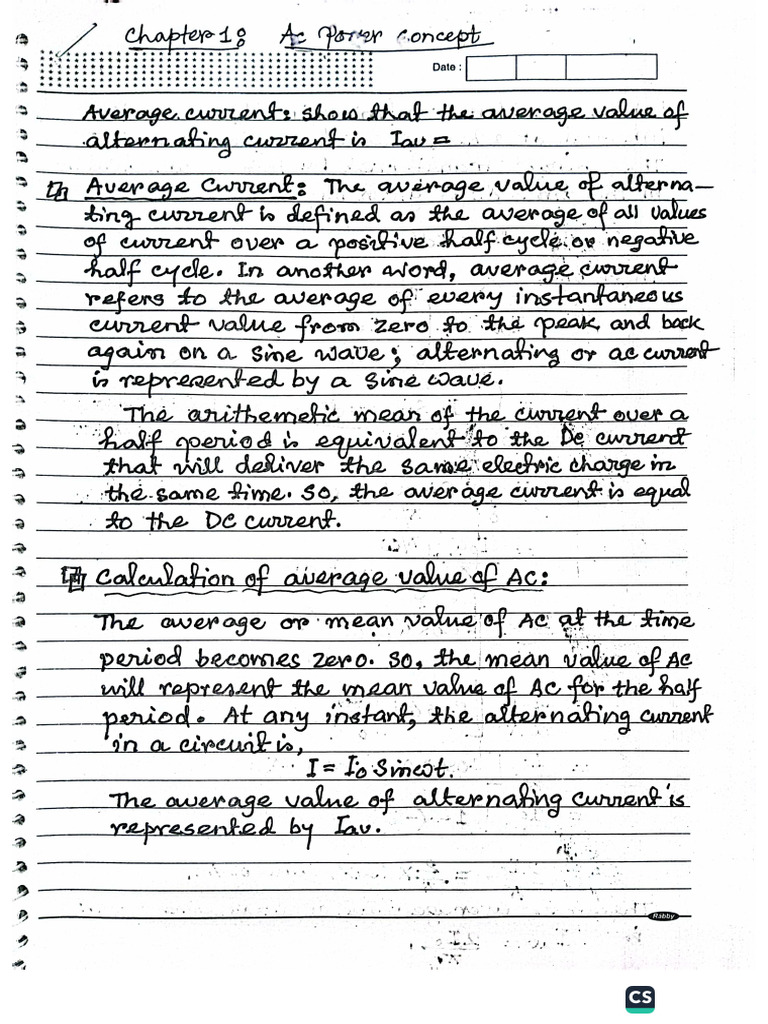 Chapter 1: Ac Power Concept
Date :
Average current: show that the average value of
alternating current is Iav =
Average Current: The average value of alterna-
ting current is defined as the average of all values
of current over a positive half cycle or negative
half cycle. In another word, average current
refers to the average of every instantaneous
current value from zero to the peak, and back
again on a sine wave; alternating or ac current
is represented by a sine wave.
The arithemetic mean of the current over a
half period is equivalent to the Dc current
that will deliver the same electric charge in
the same time. So, the average current is equal
to the DC current.
Calculation of average value of AC:
The average or mean value of AC at the time
period becomes zero. So, the mean value of AC
will represent the mean value of AC for the half
period. At any instant, the alternating current
in a circuit is,
I = I₀ Sinωt.
The average value of alternating current is
represented by Iav.
Rabby
CS